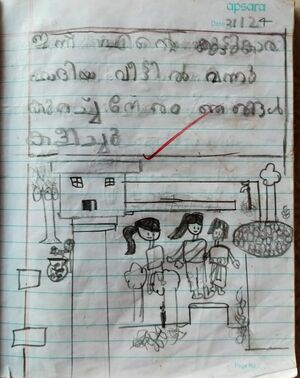 apsara
Date 21/1/24
ഇന്ന് എന്റെ കൂട്ടുകാരി
വീട്ടിൽ വന്നു
കുറച്ച് നേരം ഞങ്ങൾ
കളിച്ചു
Page No.